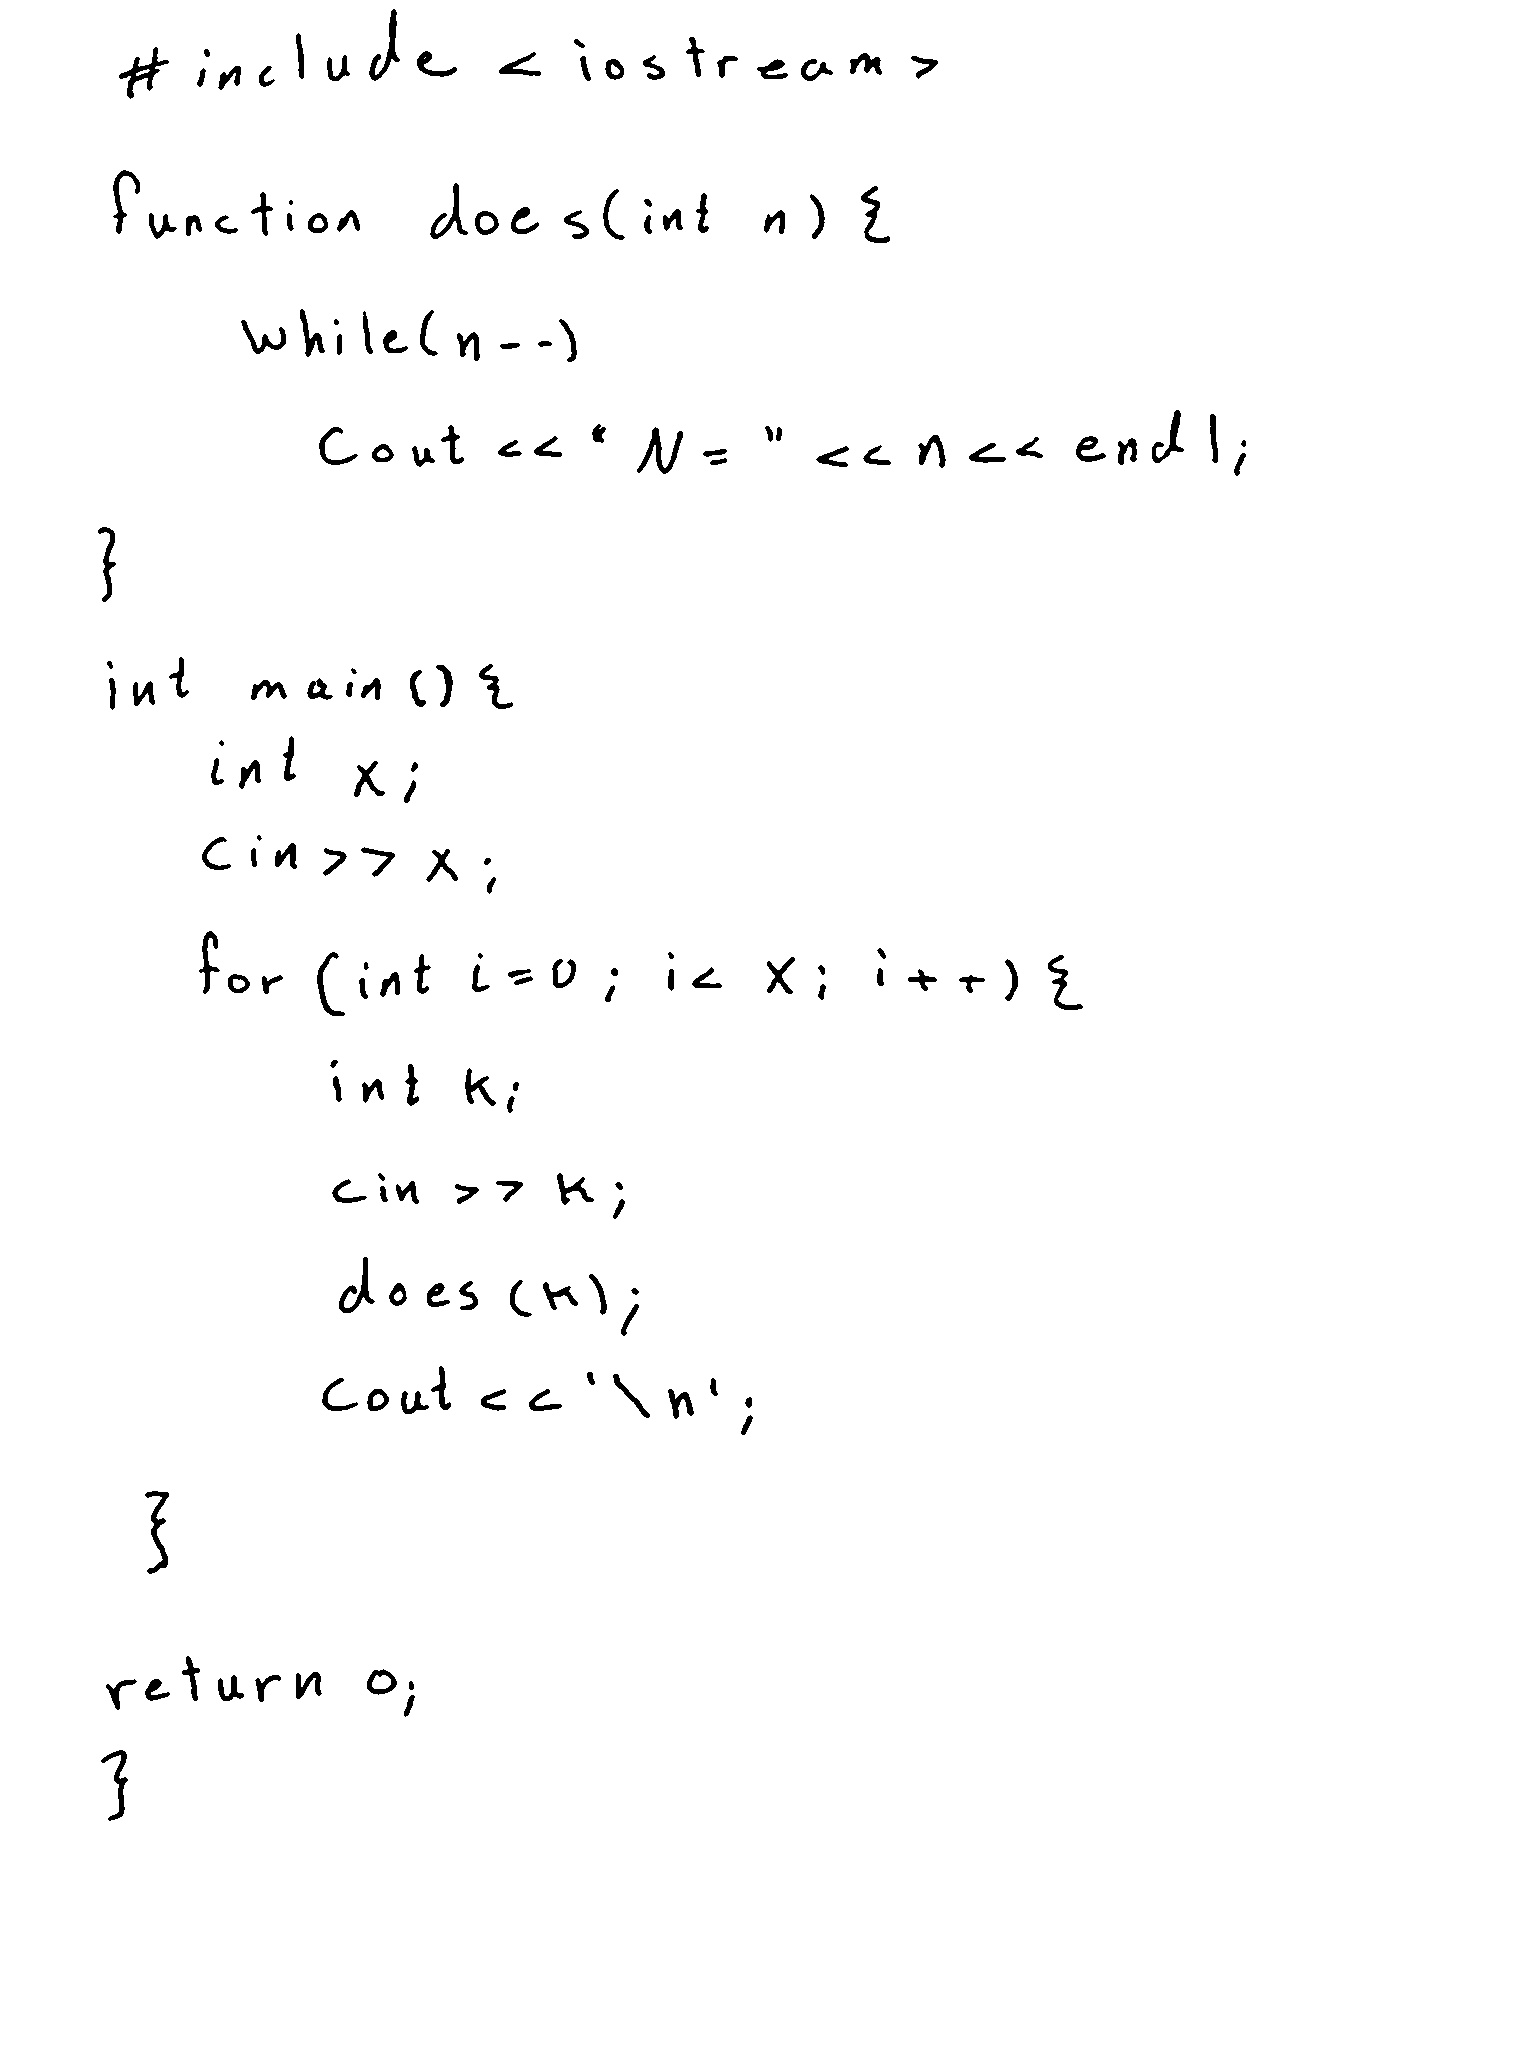 #include <iostream>
function does(int n) {
while(n--)
cout << "N=" << n << endl;
}
int main() {
int x;
cin >> x;
for (int i=0; i< x; i++) {
int k;
cin >> k;
does (k);
cout << '\n';
}
return 0;
}